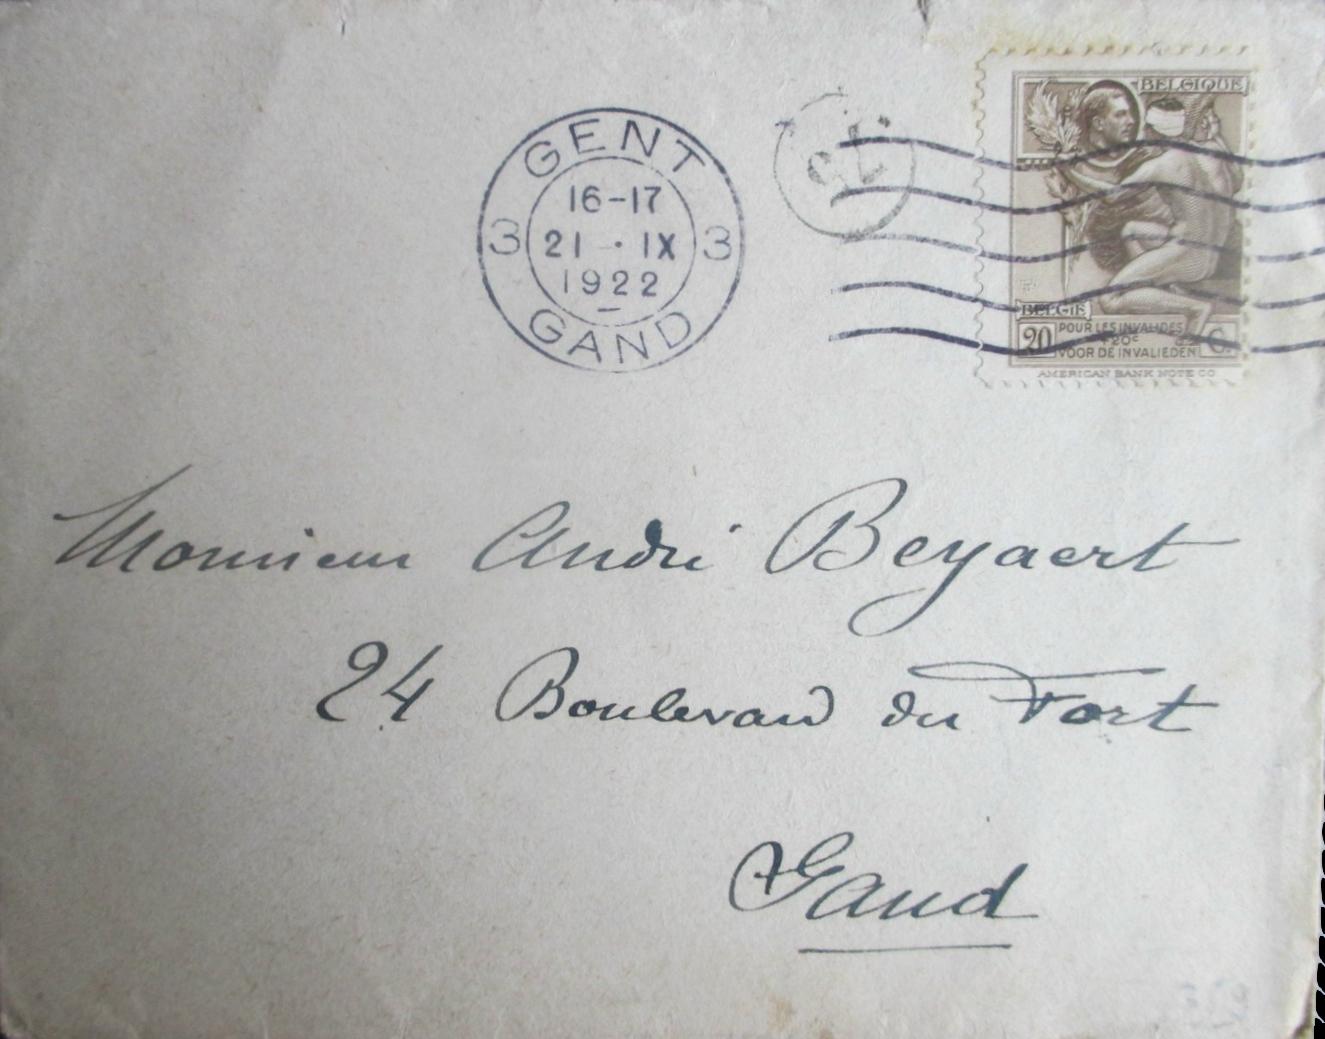 GENT
3 16-17 3
21 - · IX
1922
GAND
BELGIQUE
BELGIË
20 POUR LES INVALIDES C.
+20c
VOOR DE INVALIEDEN
AMERICAN BANK NOTE CO
Monsieur André Beyaert
24 Boulevard du Fort
Gand